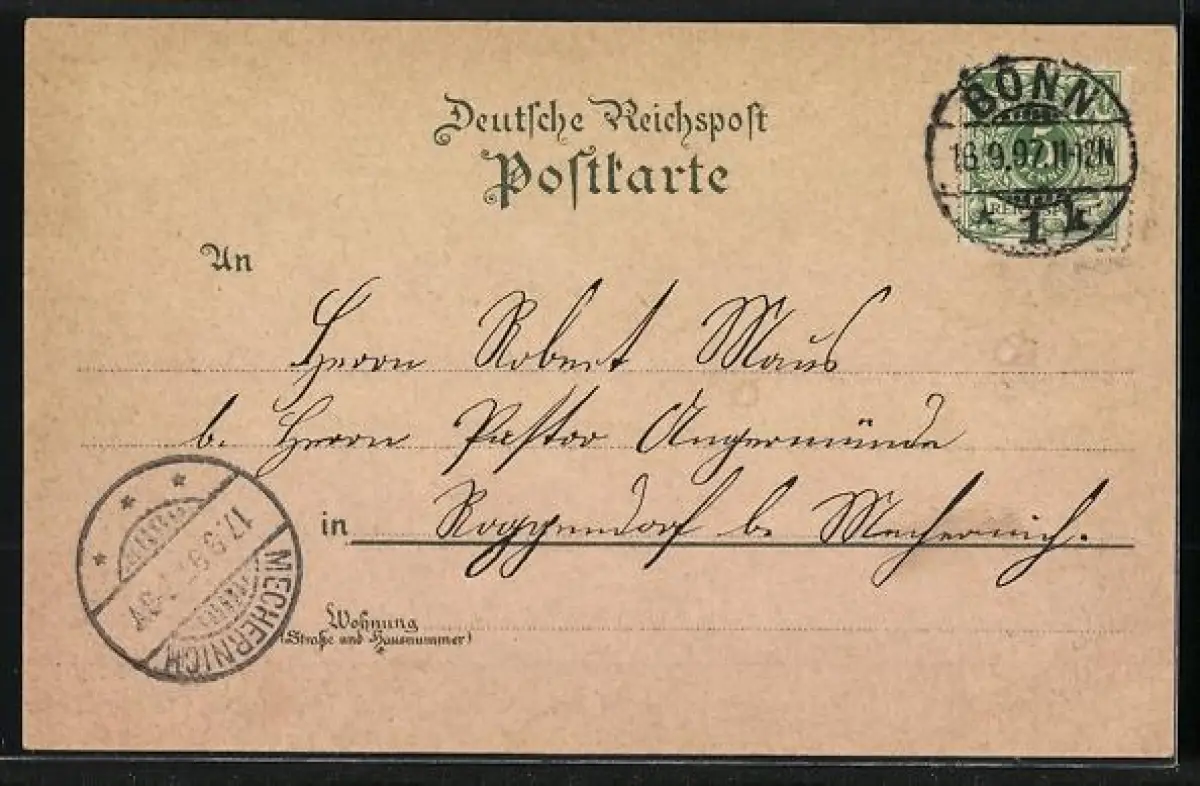 Deutsche Reichspost
Postkarte
BONN
16.9.97.11-12N
* 1 k
5
An
Herrn Robert Maus
b. Herrn Pastor Angermünde
in Roggendorf b. Mechernich.
17.9.97
MECHERNICH
Wohnung
(Straße und Hausnummer)